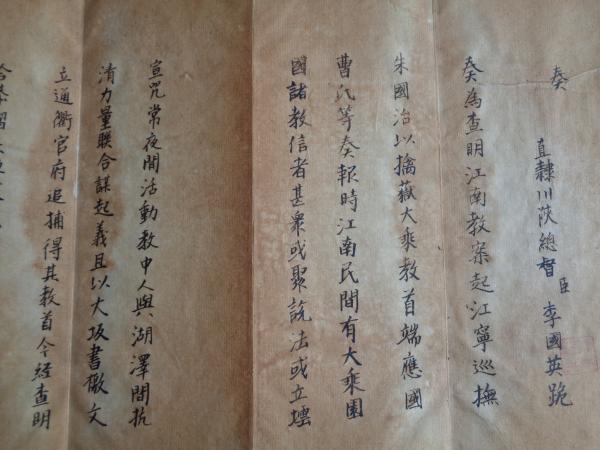 奏
直隸川陝總督臣李國英跪
奏為查明江南教案起江寧巡撫
朱國治以擒獄大乘教首端應國
曹氏等奏報時江南民間有大乘圓
國諸教信者甚衆或聚説法或立壇
宣咒常夜間活動教中人與湖澤間抗
清力量聯合謀起義且以大坂書檄文
立通衢官府追捕得其教首今经查明